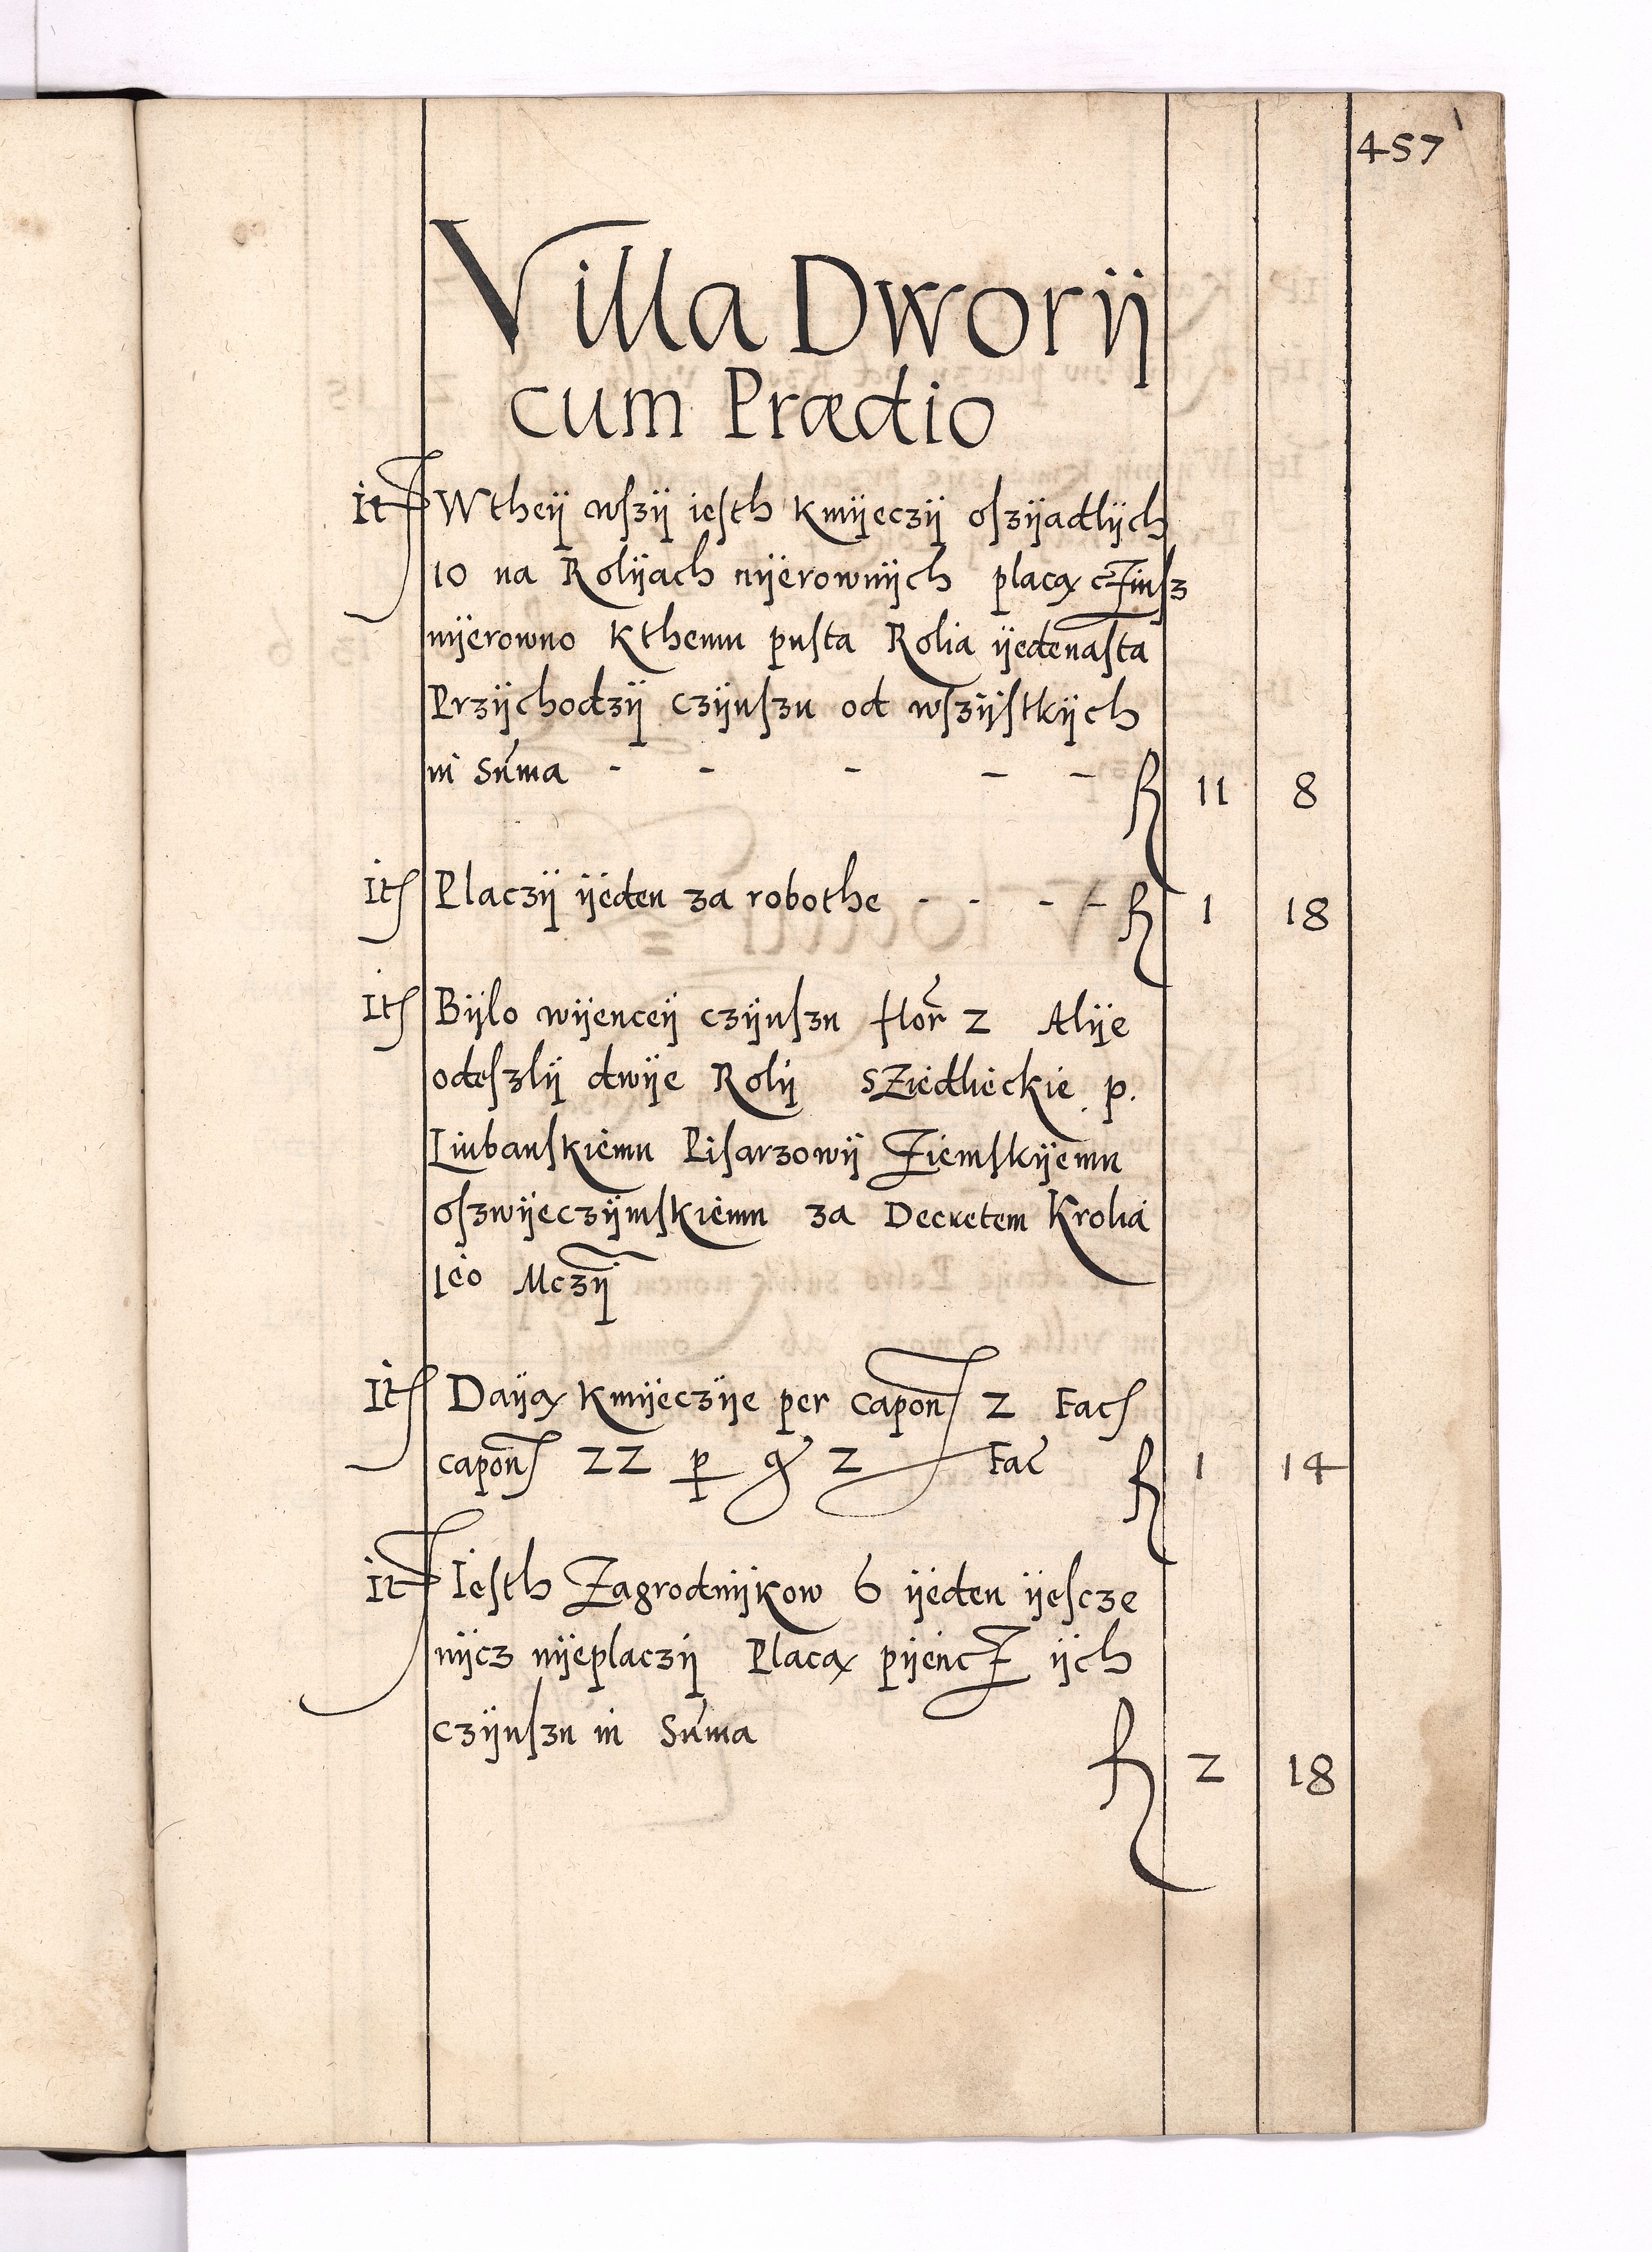 457
Villa Dworÿ
cum Prædio
It Wtheÿ wſzÿ ieſth Kmÿeczÿ oſzÿadlÿch
10 na Rolÿach nÿerownÿch placą cZinſz
nÿerowno Kthemu puſta Rolia ÿedenaſta
Przÿchodzÿ czÿnſzu od wſzÿſtkÿch
in Sum̃a - - - - - fl 11 8
It Placzÿ ÿeden za robothe - - - - fl 1 18
It Bÿlo wÿenceÿ czÿnſzu flor̃ 2 Alÿe
odeſzlÿ dwÿe Rolÿ SZiedlieckie p.
Liubanſkiemu Piſarzowÿ Ziemſkÿemu
oſzwÿeczÿmſkiemu za Decretem Krolia
Ieo Mczÿ
It Daÿą Kmÿeczÿe per capon 2 Fac
capon 22 p g 2 Fac fl 1 14
It Ieſth Zagrodnÿkow 6 ÿeden ÿeſcze
nÿcz nÿeplaczÿ Placą pÿencZ ÿch
czÿnſzu in Sum̃a
fl 2 18